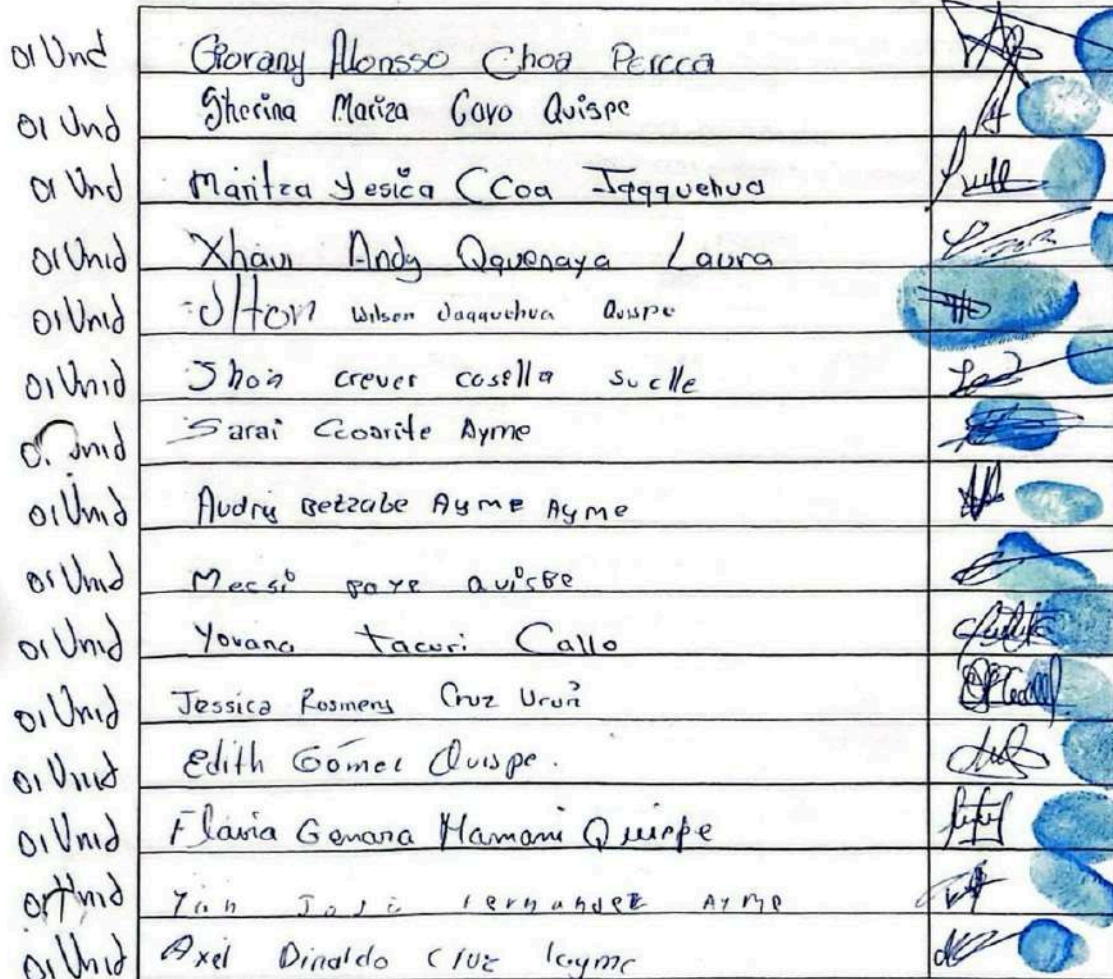 01 Und Giovany Alonsso Choa Percca
01 Und Gherina Mariza Covo Quispe
01 Und Maritza Yesica CCoa Jaqquehua
01 Unid Xhavi Andy Qquenaya Laura
01 Unid Jhon Wilson Jaqquehua Quispe
01 Unid Jhon crever casella suclle
01 Unid Sarai Ccoarite Ayme
01 Unid Audriy Betzabe Ayme Ayme
01 Unid Messi paye quispe
01 Unid Yovana tacuri Callo
01 Unid Jessica Rosmery Cruz
01 Unid Edith Gómez Quispe.
01 Unid Flavia Genara Mamani Quispe
01 Unid José Fernandez Ayme
01 Unid Axel Dinaldo Cruz layme